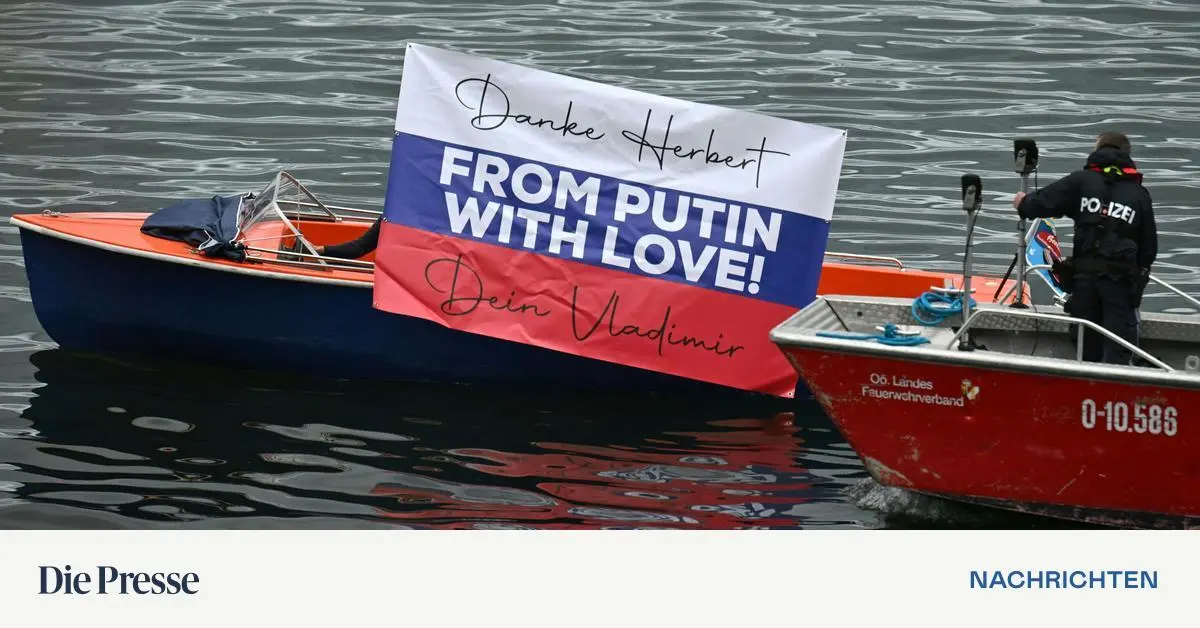 Danke Herbert
FROM PUTIN
WITH LOVE!
Dein Vladimir
POLIZEI
Oö. Landes
Feuerwehrverband
O-10.586
Die Presse
NACHRICHTEN